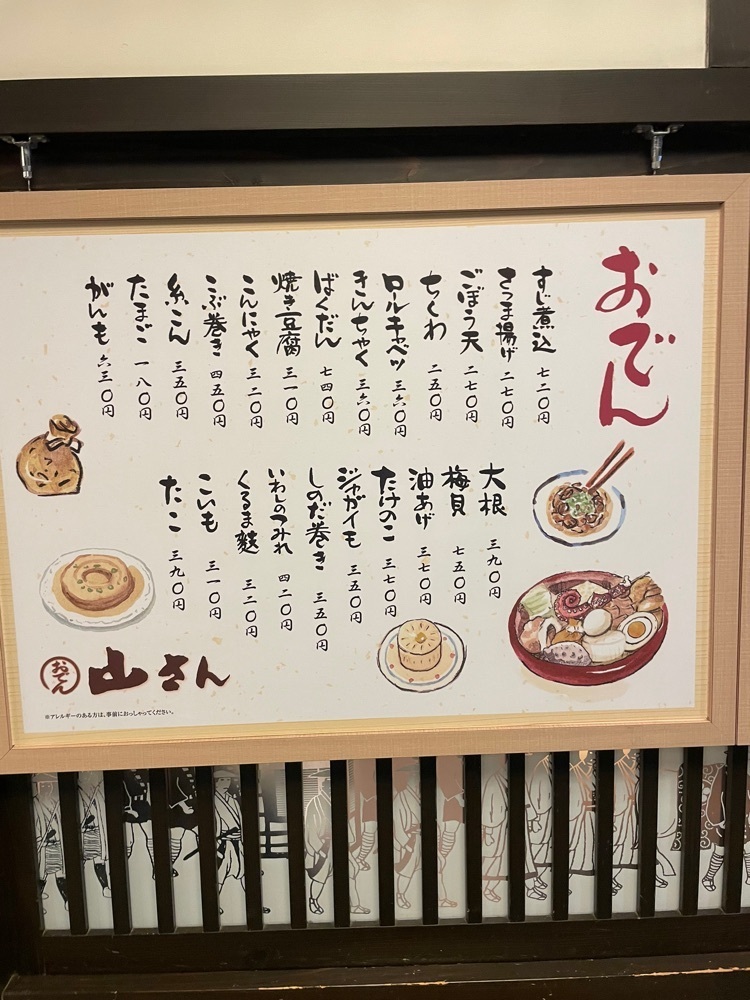 おでん
すじ煮込 七二〇円
さつま揚げ 二七〇円
ごぼう天 二七〇円
ちくわ 二五〇円
ロールキャベツ 三六〇円
きんちゃく 三六〇円
ばくだん 七四〇円
焼き豆腐 三一〇円
こんにゃく 三二〇円
こぶ巻き 四五〇円
糸こん 三五〇円
たまご 一八〇円
がんも 六三〇円
大根 三九〇円
梅貝 七五〇円
油あげ 三七〇円
たけのこ 三七〇円
ジャガイモ 三五〇円
しのだ巻き 三五〇円
いわしのつみれ 四二〇円
くるま麩 三二〇円
こいも 三一〇円
たこ 三九〇円
おでん 山さん
※アレルギーのある方は、事前におっしゃってください。